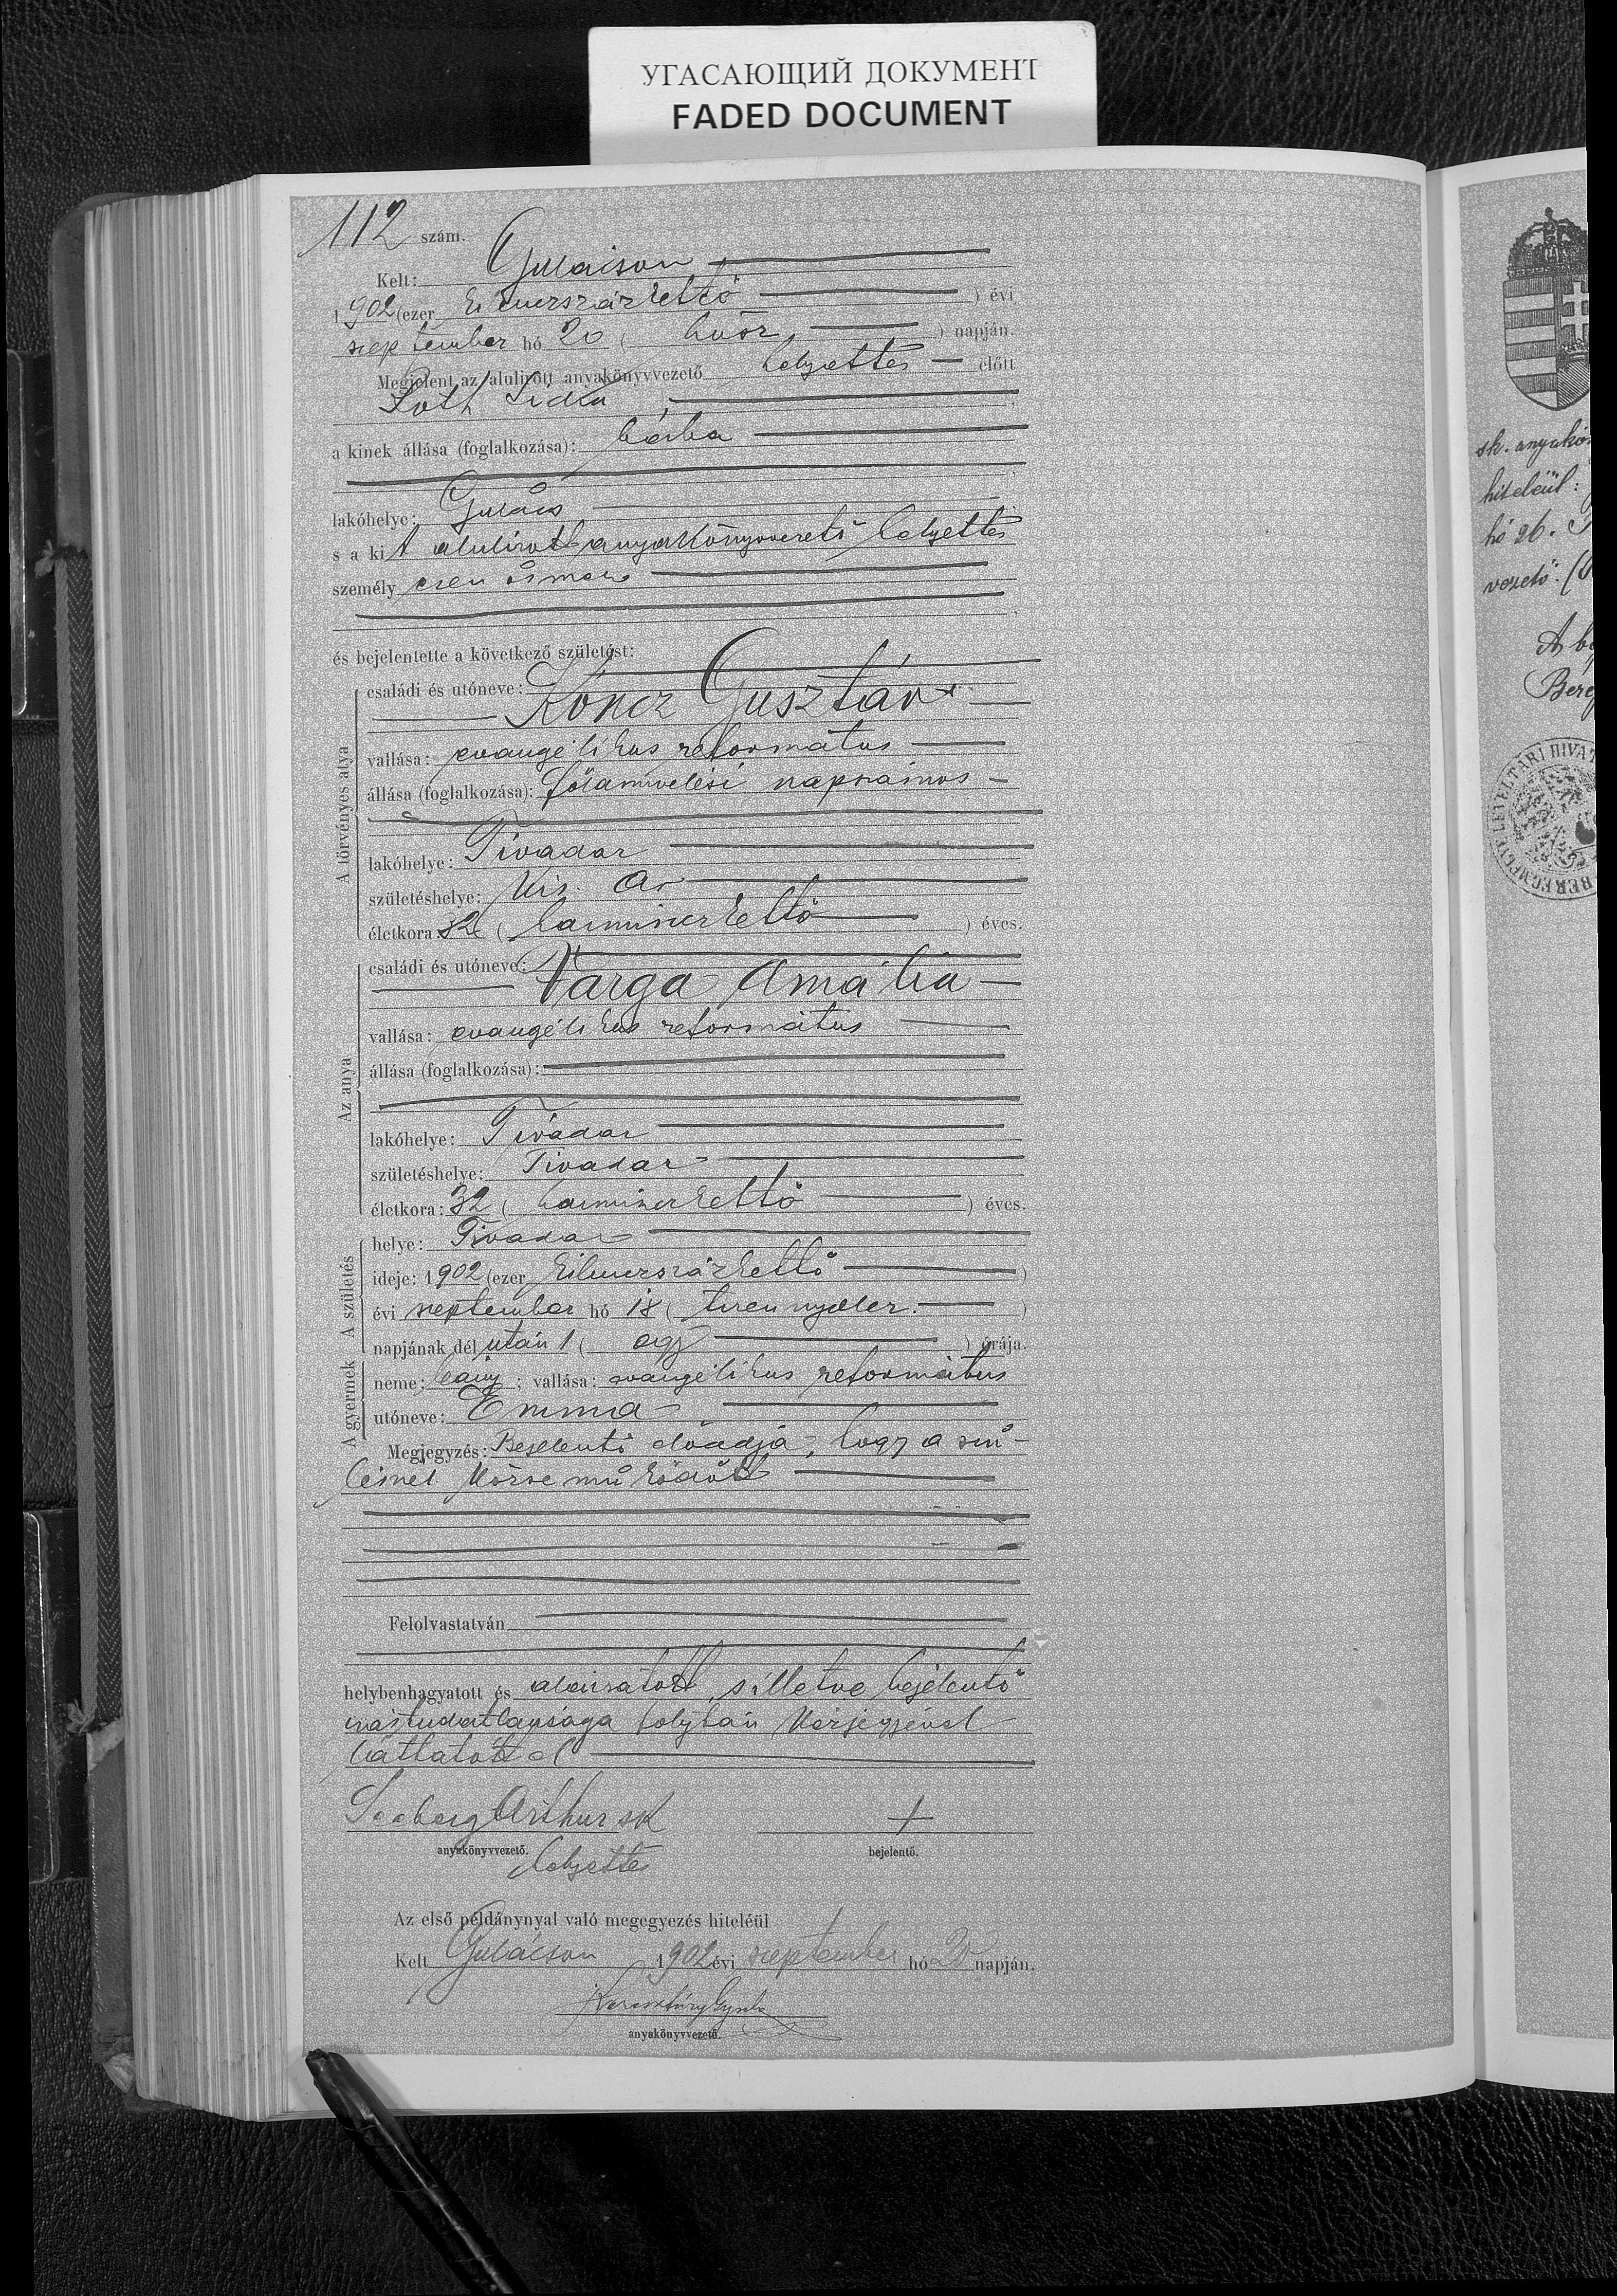 УГАСАЮЩИЙ ДОКУМЕНТ
FADED DOCUMENT
112 szám.
Kelt: Gulácson
1902 (ezer kilenczszázkettő ) évi
szeptember hó 20 ( húsz ) napján.
Megjelent az alulirott anyakönyvvezető helyettes előtt
Tóth Lidia
a kinek állása (foglalkozása): bába
lakóhelye: Gulács
s a kit alulirott anyakönyvvezető helyettes
személyesen ösmer
és bejelentette a következő születést:
A törvényes atya
családi és utóneve:
Koncz Gusztáv
vallása: evangélikus református
állása (foglalkozása): földmivelési napszámos
lakóhelye: Tivadar
születéshelye: Kis Ar
életkora: 32 ( harminczkettő ) éves.
Az anya
családi és utóneve:
Varga Amália
vallása: evangélikus református
állása (foglalkozása):
lakóhelye: Tivadar
születéshelye: Tivadar
életkora: 32 ( harminczkettő ) éves.
A születés
helye: Tivadar
ideje: 1902 (ezer kilenczszázkettő )
évi szeptember hó 18 ( tizennyolcz )
napjának dél után 1 ( egy ) órája.
A gyermek
neme: leány ; vallása: evangélikus református
utóneve: Emma
Megjegyzés: Bejelentő előadja, hogy a szü-
lésnél közreműködött
Felolvastatván
helybenhagyatott és aláiratott, s illetve bejelentő
irástudatlansága folytán kézjegyével
láttatott el
Arthur sk +
anyakönyvvezető. bejelentő.
helyettes
Az első példánynyal való megegyezés hiteléül
Kelt Gulácson 1902 évi szeptember hó 20 napján.
Gyula
anyakönyvvezető.
sk. anyakön
hiteléül:
hó 26.
vezető. (
A b
Bereg